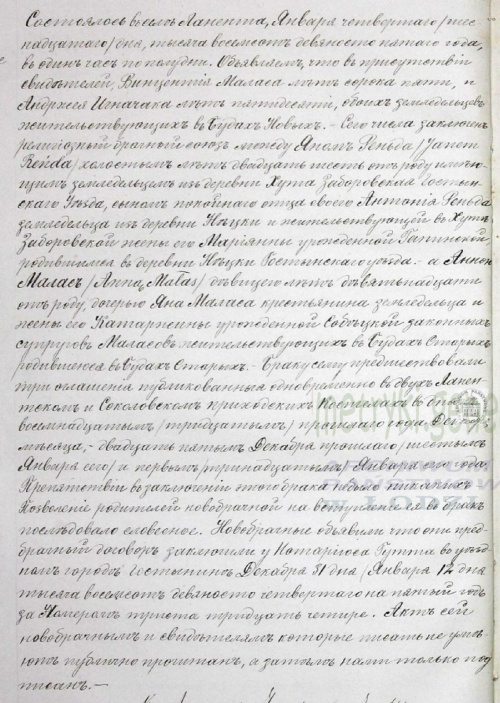 Состоялось въ селѣ Ланента, Января четвертаго /шес-
надцатаго/ дня, тысяча восемсотъ девяносто пятаго года,
въ одинъ часъ по полудни. Объявляемъ, что въ присутствіи
свидѣтелей, Винцентія Маласа лѣтъ сорока пяти, и
Андржея Игначака лѣтъ пятидесяти, обоихъ земледѣльцевъ
жительствующихъ въ Будахъ Новыхъ. – Сего числа заключенъ
религіозный брачный союзъ между Яномъ Реньда /Janem
Reńda/ холостымъ лѣтъ двадцать шесть отъ роду имѣю-
щимъ земледѣльцемъ изъ деревни Хута Заборовская Гостын-
скаго Уѣзда, сыномъ покойнаго отца своего Антонія Реньда
земледѣльца изъ деревни и жительствующей въ Хутѣ
Заборовской жены его Маріянны урожденной
родившимся въ деревни Гостынскаго уѣзда. – а Анною
Маласъ /Anną Malas/ дѣвицею лѣтъ девятьнадцати
отъ роду, дочерью Яна Маласа крестьянина земледѣльца и
жены его Катаржины урожденной Собѣцкой законныхъ
супруговъ Маласовъ жительствующихъ въ Будахъ Старыхъ
родившеюся въ Будахъ Старыхъ. – Браку сему предшествовали
три оглашенія публикованныя одновременно въ двухъ Ланен-
тскомъ и Соколовскомъ приходскихъ Костелахъ въ дни
восемнадцатымъ /тридцатымъ/ прошлаго года Декабря
мѣсяца, – двадцать пятымъ Декабря прошлаго /шестымъ
Января сего/ и первымъ /тринадцатымъ/ Января сего года.
Препятствіи въ заключеніи этого брака небыло никакихъ
Позволеніе родителей новобрачной на вступленіе ея въ бракъ
послѣдовало словесное. Новобрачные объявили что они пред-
брачный договоръ заключили у Нотаріюса въ уѣзд-
номъ городѣ Гостынинѣ Декабря 31 дня /Января 12 дня
тысяча восемсотъ девяносто четвертаго на пятый годъ
за Номеромъ триста тридцать четире. Актъ сей
новобрачнымъ и свидѣтелямъ которые писать не умѣ-
ютъ публично прочитанъ, а затѣмъ нами только под-
писанъ. –